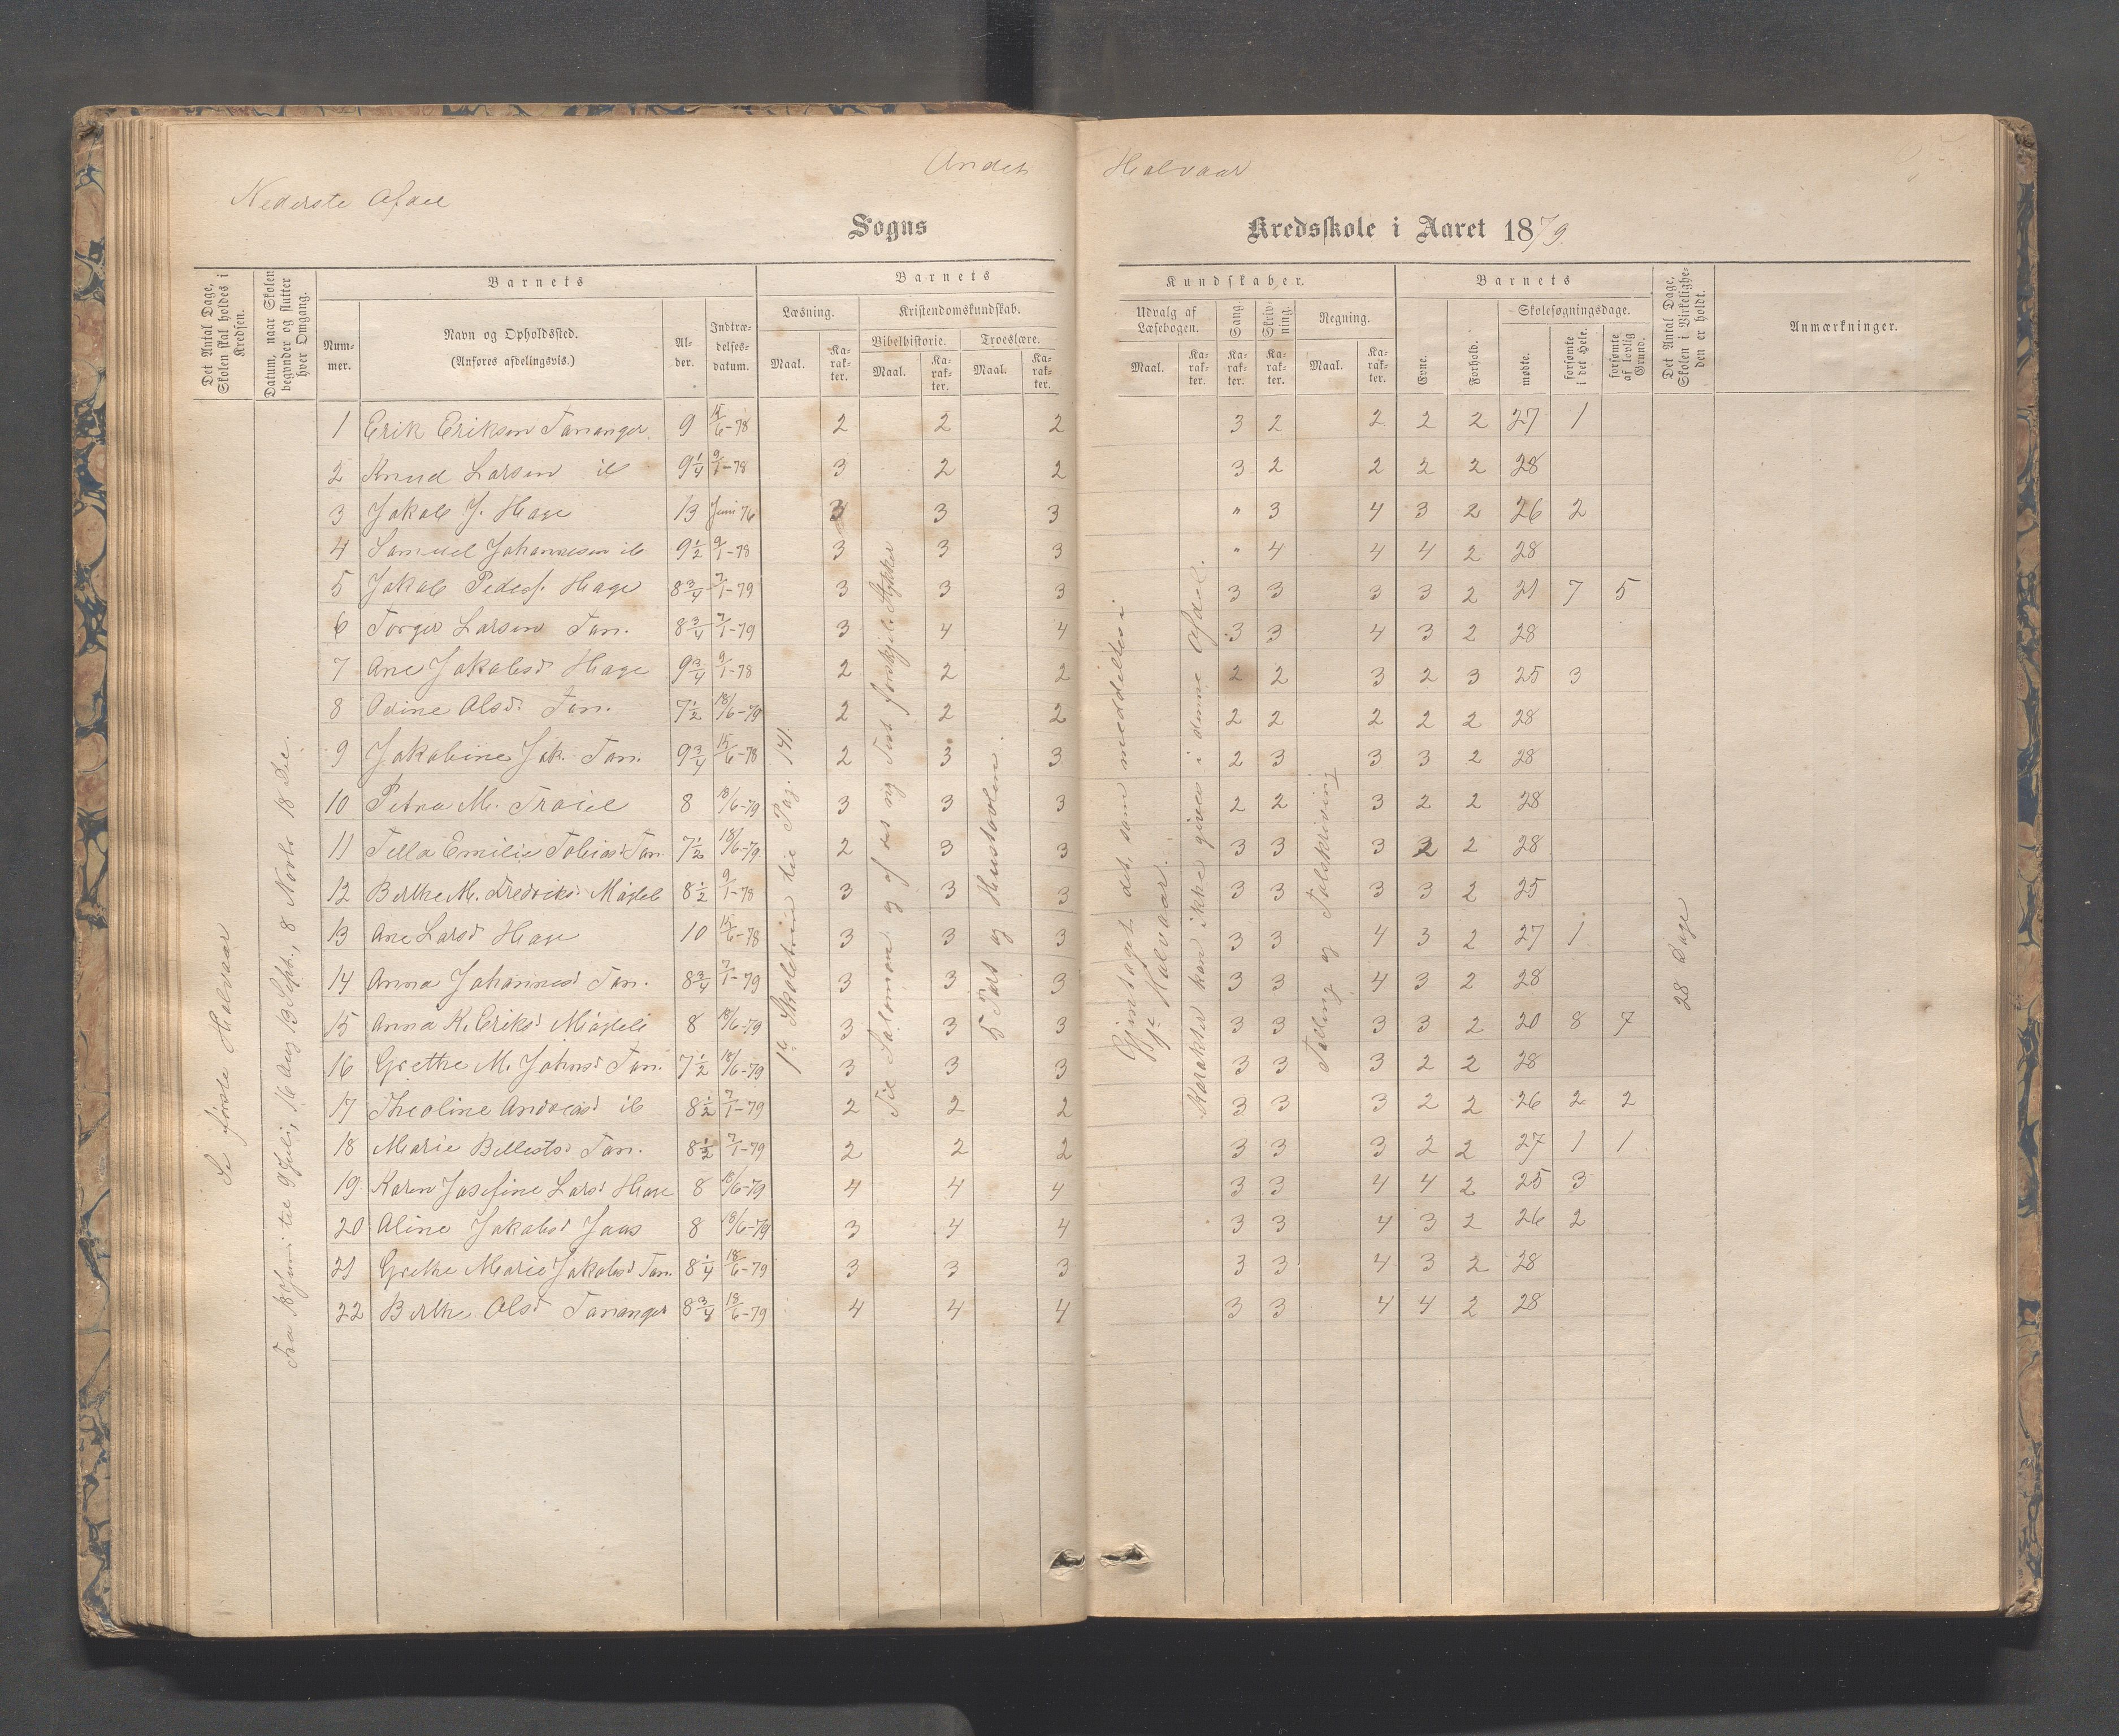 Andet Halvaar
Nederste Afdel
Sogns Kredsskole i Aaret 1879
Det Antal Dage, Skolen skal holdes i Kredsen.
Datum, naar Skolen begynder og slutter hver Omgang.
Barnets
Num-mer.
Navn og Opholdssted.
(Anføres afdelingsvis.)
Al-der.
Indtræ-delses-datum.
Barnets Kundskaber.
Læsning.
Maal. Ka-rak-ter.
Kristendomskundskab.
Bibelhistorie. Troeslære.
Maal. Ka-rak-ter. Maal. Ka-rak-ter.
Udvalg af Læsebogen.
Maal. Ka-rak-ter.
Sang. Ka-rak-ter.
Skriv-ning. Ka-rak-ter.
Regning.
Maal. Ka-rak-ter.
Barnets
Evne. Forhold.
Skolesøgningsdage.
mødte. forsømte i det Hele. forsømte af lovlig Grund.
Det Antal Dage, Skolen i Virkelighe-den er holdt.
Anmærkninger.
Se første Halvaar
Fra 18 Juni til 9 Juli, 16 Aug 13 Sept., 8 Novbr 18 Dec.
1ste Skoletrin til Pag. 141.
Til Salomon og af det ny Test forskjell. Stykker
5 Part og Hustavlen.
Gjentaget det, som meddeltes i
Halvaar.
Karakter kan ikke gives i denne Afdel.
Telling og Talskrivning
28 Dage
1 Erik Eriksen Tananger 9 15/6-78 2 2 2 3 2 2 2 2 27 1
2 Knud Larsen ib 9 1/4 9/1-78 3 2 2 3 2 2 2 2 28
3 Jakob J. Hage 13 Juni 76 3 3 3 " 3 4 3 2 26 2
4 Samuel Johannesen ib 9 1/2 9/1-78 3 3 3 " 4 4 4 2 28
5 Jakob Peders. Hage 8 3/4 7/1-79 3 3 3 3 3 3 3 2 21 7 5
6 Torger Larsen Tan. 8 3/4 7/1-79 3 4 4 3 3 4 3 2 28
7 Ane Jakobsd Hage 9 3/4 9/1-78 2 2 2 2 2 3 2 3 25 3
8 Odine Olsd. Tan. 7 1/2 18/6-79 2 2 2 2 2 2 2 2 28
9 Jakobine Jak. Tan. 9 3/4 15/6-78 2 3 3 2 3 3 3 2 28
10 Petra M. 8 18/6-79 3 3 3 2 2 3 2 2 28
11 Tella Emilie Tobiasd Tan 7 1/2 18/6-79 2 3 3 3 3 3 2 2 28
12 Berthe M. Fredriksd 8 1/2 9/1-78 3 3 3 3 3 3 3 2 25
13 Ane Larsd Hage 10 15/6-78 3 3 3 3 3 4 3 2 27 1
14 Anna Johannesd Tan. 8 3/4 7/1-79 3 3 3 3 3 4 3 2 28
15 Anna K. Eriksd 8 18/6-79 3 3 3 3 3 3 3 2 20 8 7
16 Grethe M. Johnsd Tan. 7 1/2 18/6-79 3 3 3 3 3 3 2 2 28
17 Theoline Andreasd ib 8 1/2 7/1-79 2 2 2 3 3 3 2 2 26 2 2
18 Marie Tan. 8 1/2 7/1-79 2 2 2 3 3 3 2 2 27 1 1
19 Karen Josefine Larsd Hage 8 18/6-79 4 4 4 3 3 4 4 2 25 3
20 Aline Jakobsd Jaas 8 18/6-79 3 4 4 3 3 4 3 2 26 2
21 Grethe Marie Jakobsd Tan. 8 1/4 18/6-79 3 3 3 3 3 4 3 2 28
22 Berthe Olsd Tananger 8 3/4 18/6-79 4 4 4 3 3 4 4 2 28